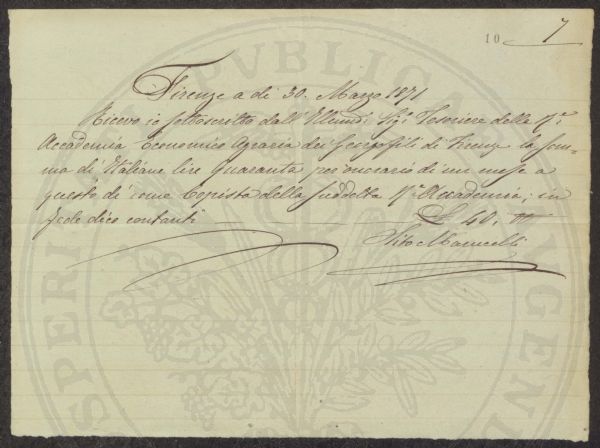 10 7
Firenze a dì 30. Marzo 1871
Ricevo io sottoscritto dall' Illmo. Sigr. Tesoriere della Rle.
Accademia Economico Agraria dei Georgofili di Firenze la som-
ma di Italiane lire quaranta per onorario di un mese a
questo dì come Copista della suddetta Rle. Accademia; in
fede dico contanti £ 40.
PUBLICAE
PROSPERITATI AUGENDAE